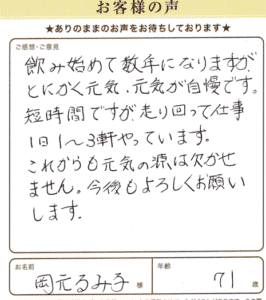 お客様の声
★ありのままのお声をお待ちしております★
ご感想・ご意見
飲み始めて数年になりますが、
とにかく元気、元気が自慢です。
短時間ですが走り回って仕事
1日1〜3軒やっています。
これからも元気の源は欠かせ
ません。今後もよろしくお願い
します。
お名前
岡元るみ子 様
年齢
71 歳